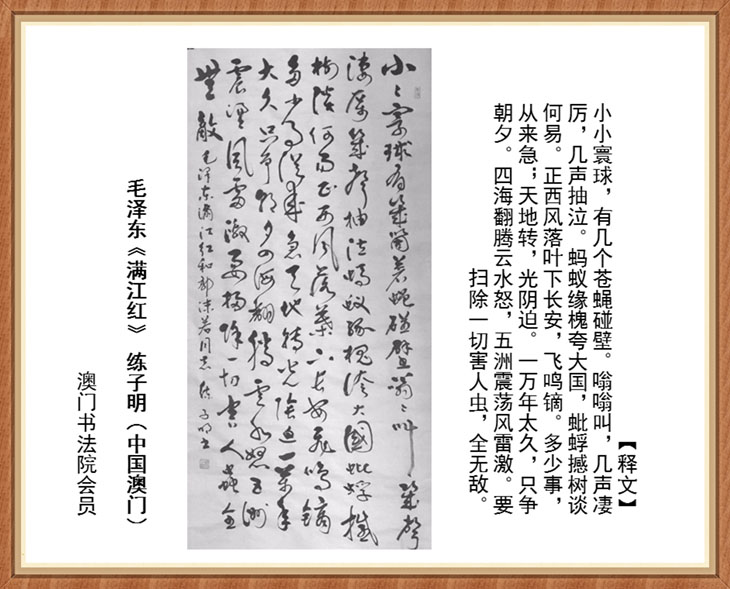 【释文】
小小寰球，有几个苍蝇碰壁。嗡嗡叫，几声凄
厉，几声抽泣。蚂蚁缘槐夸大国，蚍蜉撼树谈
何易。正西风落叶下长安，飞鸣镝。多少事，
从来急；天地转，光阴迫。一万年太久，只争
朝夕。四海翻腾云水怒，五洲震荡风雷激。要
扫除一切害人虫，全无敌。
小〻寰球有幾箇蒼蠅碰壁嗡〻叫幾聲
凄厲幾聲抽泣螞蟻緣槐誇大國蚍蜉撼
樹談何易正西風落葉下長安飛鳴鏑
多少事從來急天地轉光陰迫一萬年
太久只爭朝夕四海翻騰雲水怒五洲
震盪風雷激要掃除一切害人蟲全
無敵 毛澤東滿江紅和郭沫若同志 练子明书
毛泽东《满江红》 练子明（中国澳门）
澳门书法院会员